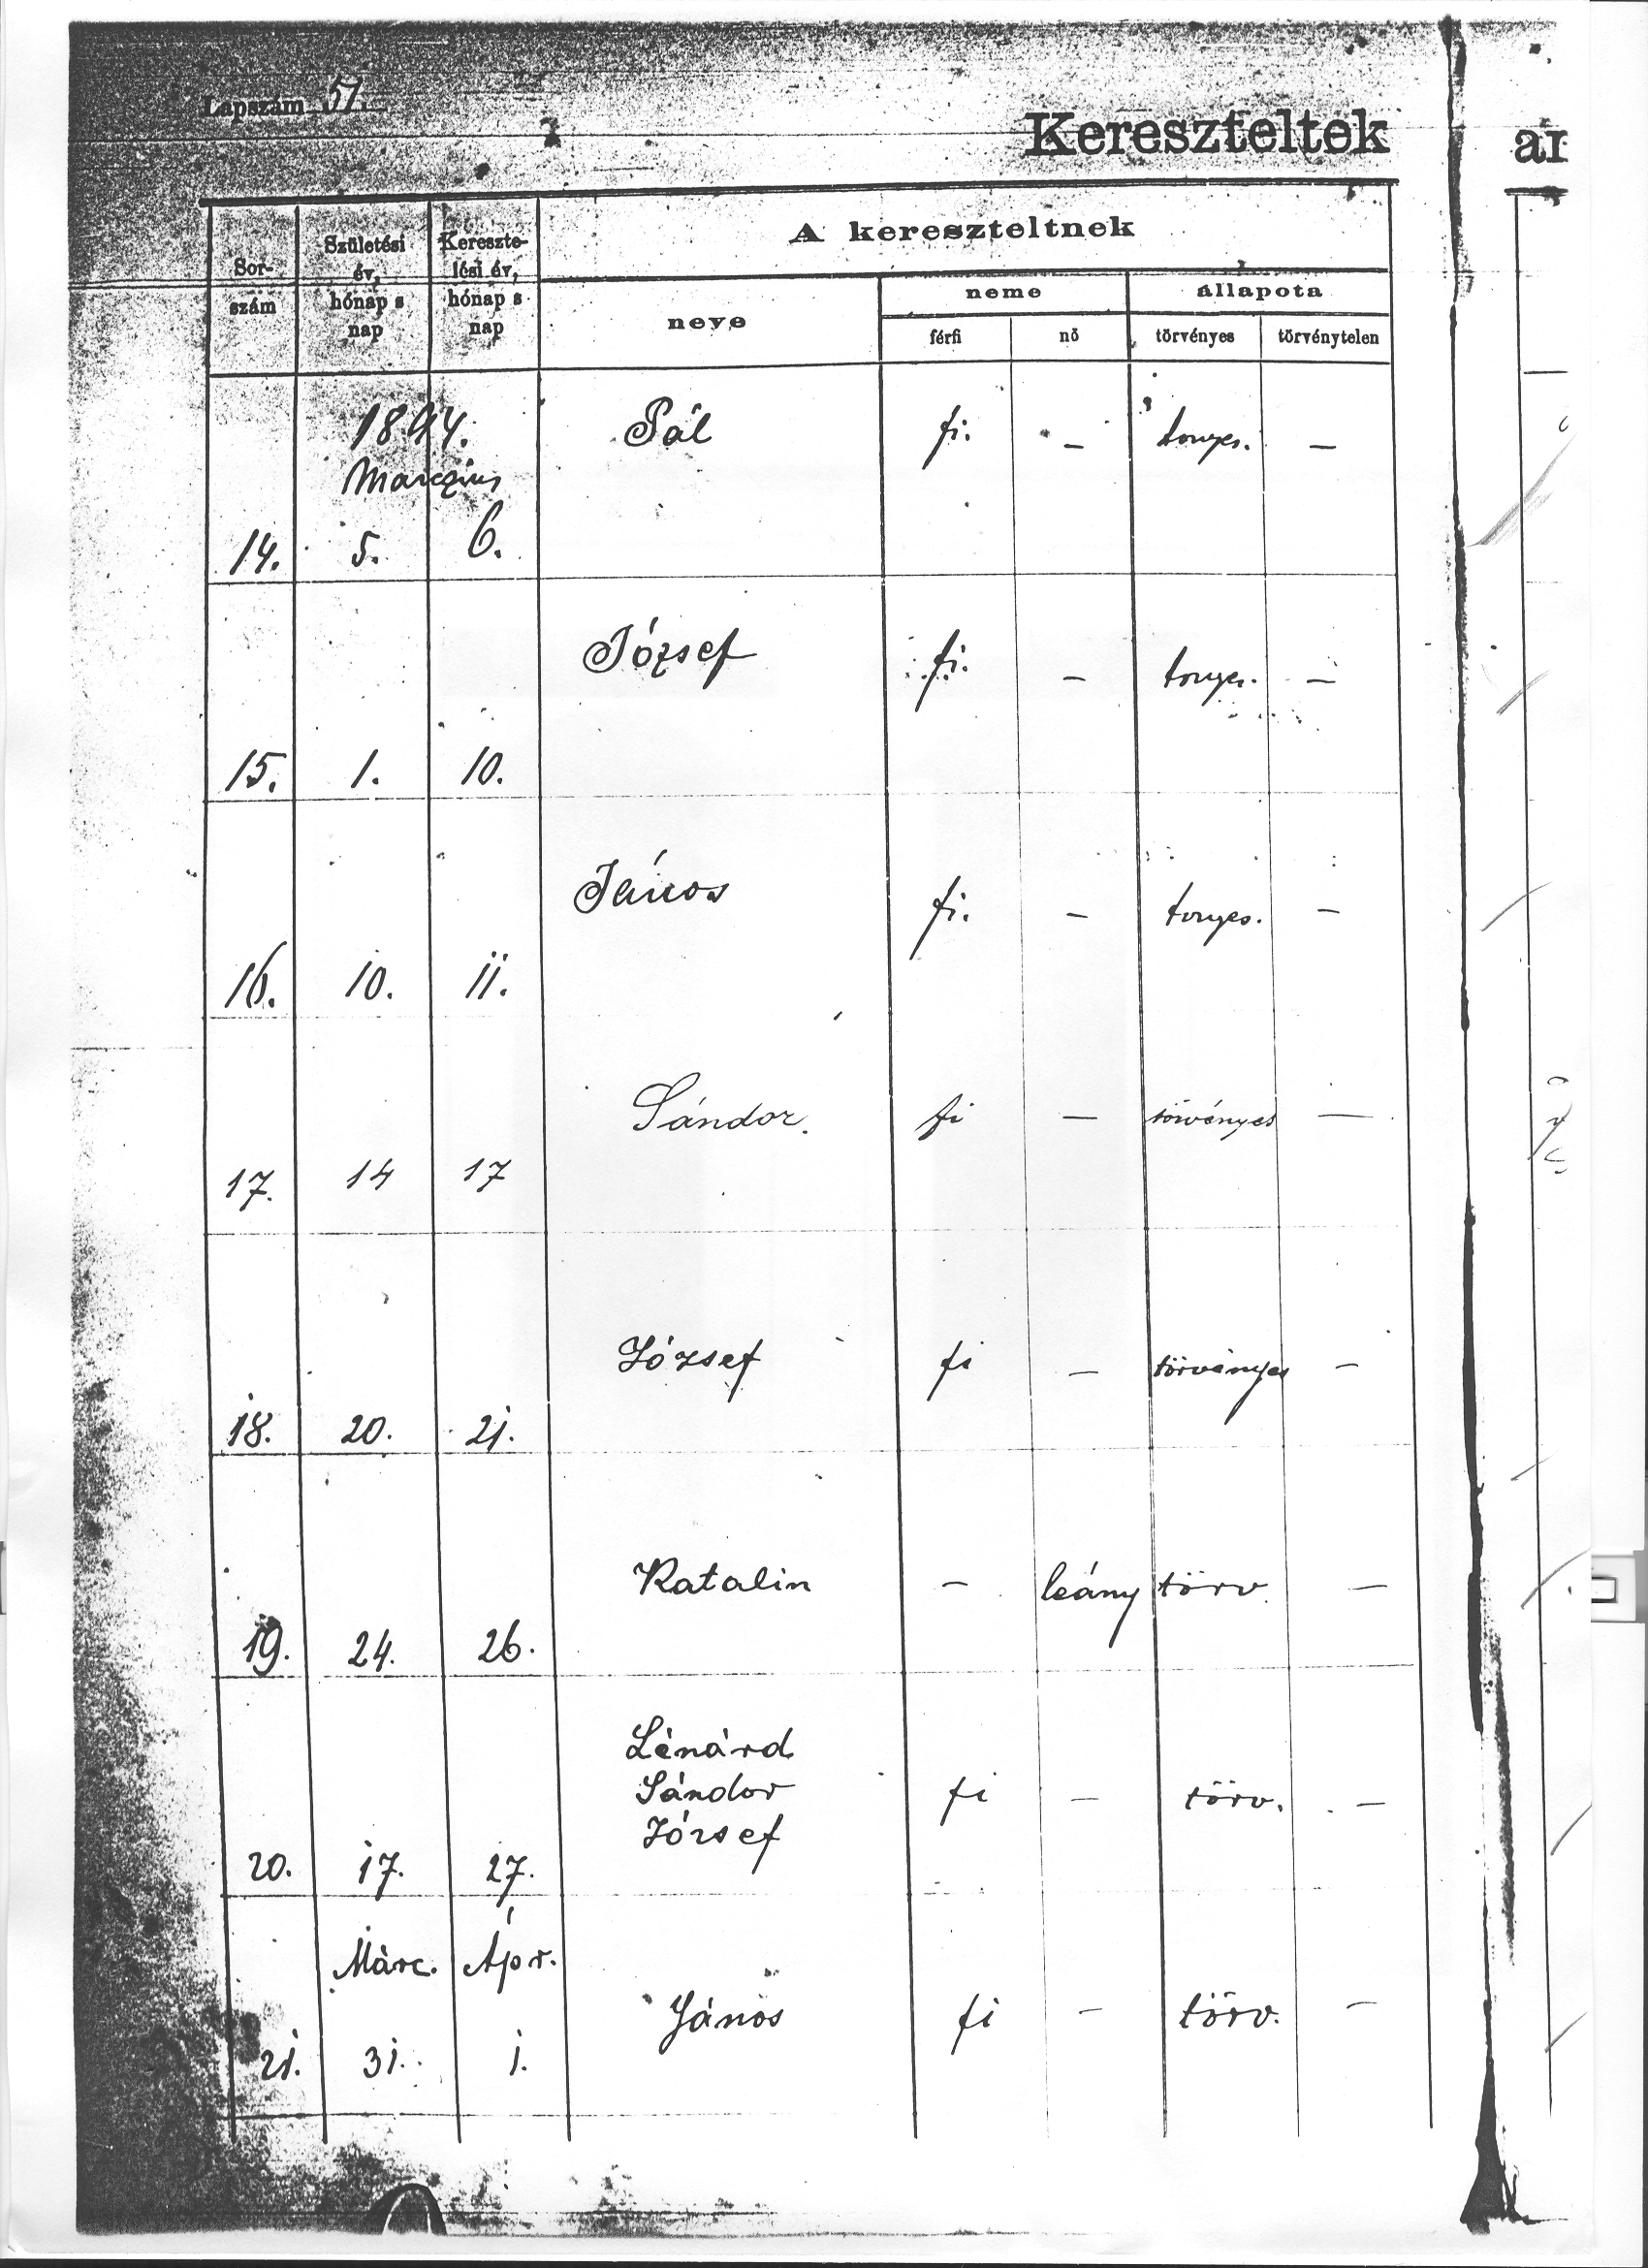 Lapszám 51.
Kereszteltek
A kereszteltnek
Sor-
szám
Születési
év,
hónap s
nap
Kereszte-
lési év,
hónap s
nap
neve
neme
állapota
férfi
nő
törvényes
törvénytelen
1894.
Marczius
14. 5. 6. Pál fi. – tvnyes. –
15. 1. 10. József fi. – tvnyes. –
16. 10. 11. János fi. – tvnyes. –
17. 14 17 Sándor. fi – törvényes –
18. 20. 21. József fi – törvényes –
19. 24. 26. Katalin – leány törv. –
Lénárd
Sándor
József
20. 17. 27. fi – törv. –
Márc. Ápr.
21. 31. 1. János fi – törv. –